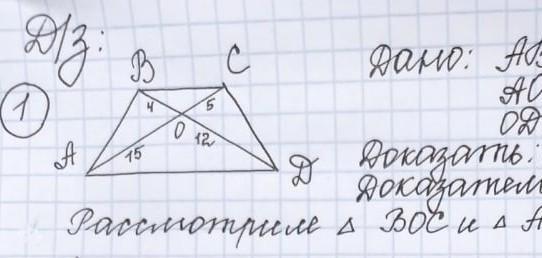 Д/з:
1
B C
4 5
O
A 15 12 D
Дано: AB
AO
OD
Доказать:
Доказател
Рассмотрим △ BOC и △ A